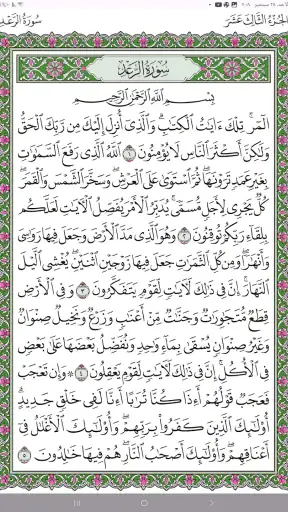 الجُزءُ الثَّالِثَ عَشَرَ سُورَةُ الرَّعْدِ
سُورَةُ الرَّعْدِ
بِسْمِ اللَّهِ الرَّحْمَٰنِ الرَّحِيمِ
الٓمٓرۚ تِلْكَ ءَايَٰتُ ٱلْكِتَٰبِۗ وَٱلَّذِىٓ أُنزِلَ إِلَيْكَ مِن رَّبِّكَ ٱلْحَقُّ
وَلَٰكِنَّ أَكْثَرَ ٱلنَّاسِ لَا يُؤْمِنُونَ ١ ٱللَّهُ ٱلَّذِى رَفَعَ ٱلسَّمَٰوَٰتِ
بِغَيْرِ عَمَدٍ تَرَوْنَهَاۖ ثُمَّ ٱسْتَوَىٰ عَلَى ٱلْعَرْشِۖ وَسَخَّرَ ٱلشَّمْسَ وَٱلْقَمَرَۖ
كُلٌّ يَجْرِى لِأَجَلٍ مُّسَمًّىۚ يُدَبِّرُ ٱلْأَمْرَ يُفَصِّلُ ٱلْءَايَٰتِ لَعَلَّكُم
بِلِقَآءِ رَبِّكُمْ تُوقِنُونَ ٢ وَهُوَ ٱلَّذِى مَدَّ ٱلْأَرْضَ وَجَعَلَ فِيهَا رَوَٰسِىَ
وَأَنْهَٰرًاۖ وَمِن كُلِّ ٱلثَّمَرَٰتِ جَعَلَ فِيهَا زَوْجَيْنِ ٱثْنَيْنِۖ يُغْشِى ٱلَّيْلَ
ٱلنَّهَارَۚ إِنَّ فِى ذَٰلِكَ لَءَايَٰتٍ لِّقَوْمٍ يَتَفَكَّرُونَ ٣ وَفِى ٱلْأَرْضِ
قِطَعٌ مُّتَجَٰوِرَٰتٌ وَجَنَّٰتٌ مِّنْ أَعْنَٰبٍ وَزَرْعٌ وَنَخِيلٌ صِنْوَانٌ
وَغَيْرُ صِنْوَانٍ يُسْقَىٰ بِمَآءٍ وَٰحِدٍ وَنُفَضِّلُ بَعْضَهَا عَلَىٰ بَعْضٍ
فِى ٱلْأُكُلِۚ إِنَّ فِى ذَٰلِكَ لَءَايَٰتٍ لِّقَوْمٍ يَعْقِلُونَ ٤ ۞ وَإِن تَعْجَبْ
فَعَجَبٌ قَوْلُهُمْ أَءِذَا كُنَّا تُرَٰبًا أَءِنَّا لَفِى خَلْقٍ جَدِيدٍۗ
أُو۟لَٰٓئِكَ ٱلَّذِينَ كَفَرُوا۟ بِرَبِّهِمْۖ وَأُو۟لَٰٓئِكَ ٱلْأَغْلَٰلُ فِىٓ
أَعْنَاقِهِمْۖ وَأُو۟لَٰٓئِكَ أَصْحَٰبُ ٱلنَّارِۖ هُمْ فِيهَا خَٰلِدُونَ ٥